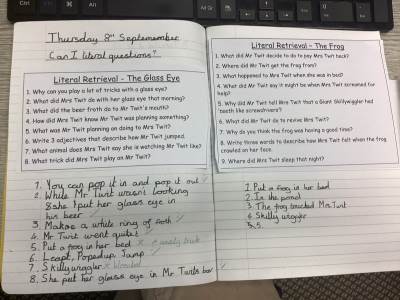 Thursday 8th Septemember
Can I literal questions?
Literal Retrieval - The Glass Eye
1. Why can you play a lot of tricks with a glass eye?
2. What did Mrs Twit do with her glass eye that morning?
3. What did the beer froth do to Mr Twit's mouth?
4. How did Mrs Twit know Mr Twit was planning something?
5. What was Mr Twit planning on doing to Mrs Twit?
6. Write 3 adjectives that describe how Mr Twit jumped.
7. What animal does Mrs Twit say she is watching Mr Twit like?
8. What trick did Mrs Twit play on Mr Twit?
1. You can pop it in and pop it out
2. While Mr Twit wasn't looking
she put her glass eye in
his beer
3. Makes a white ring of froth
4. Mr Twit went quite
5. Put a frog in her bed
6. Leapt, Poped up, Jump
7. Skillywiggler
8. She put her glass eye in Mr Twits
Literal Retrieval - The Frog
1. What did Mr Twit decide to do to pay Mrs Twit back?
2. Where did Mr Twit get the frog from?
3. What happened to Mrs Twit when she was in bed?
4. What did Mr Twit say it might be when Mrs Twit screamed for
help?
5. Why did Mr Twit tell Mrs Twit that a Giant Skillywiggler had
teeth like screwdrivers?
6. What did Mr Twit do to revive Mrs Twit?
7. Why do you think the frog was having a good time?
8. Write three words to describe how Mrs Twit felt when the frog
crawled on her face.
9. Where did Mrs Twit sleep that night?
1. Put a frog in her bed
2. In the pond
3. The frog touched Mrs Twit
4. Skilly wiggler
5.